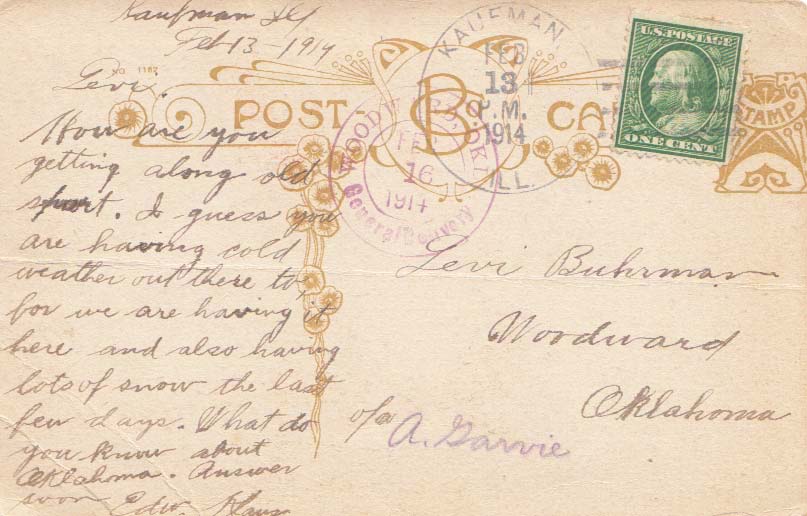 Kaufman Ill
Feb-13-1914
Levi.
How are you
getting along old
sport. I guess you
are having cold
weather out there to,
for we are having it
here and also having
lots of snow the last
few days. What do
you know about
Oklahoma. Answer
soon Edw.
No 1182
POST CARD
CB
KAUFMAN,
FEB
13
P.M.
1914
ILL.
WOODWARD, OKL
FEB
16
1914
General Delivery
U.S. POSTAGE
ONE CENT
STAMP
Levi Buhrman
Woodward
Oklahoma
c/o
A. Garvie